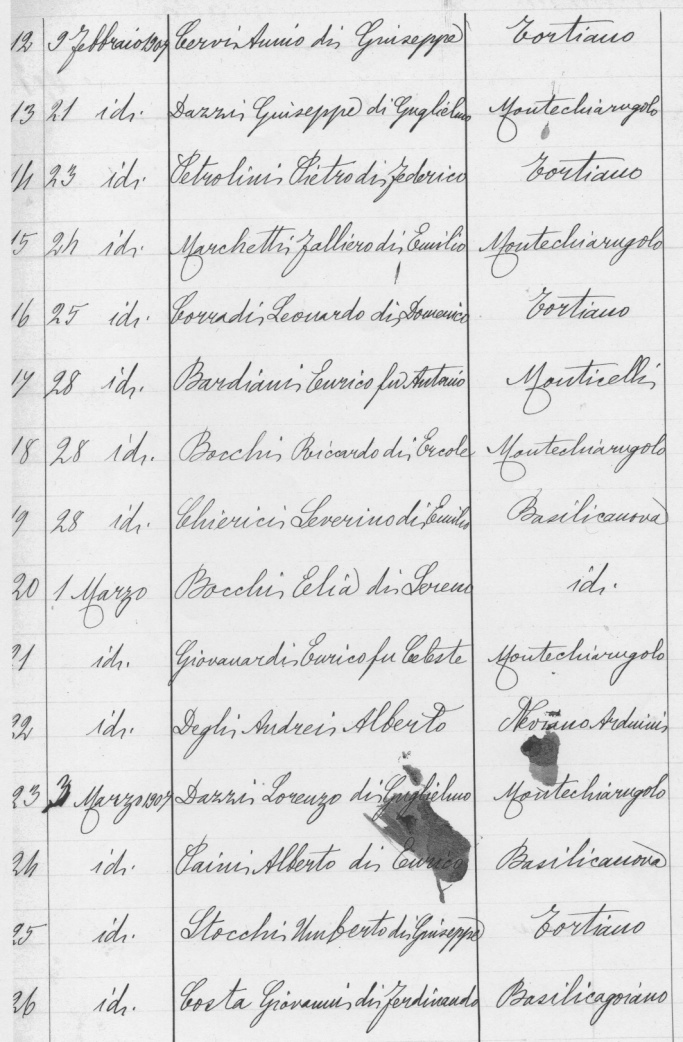 12 9 Febbraio 1907 Cervi Annio di Giuseppe Tortiano
13 21 id. Dazzi Giuseppe di Guglielmo Montechiarugolo
14 23 id. Petrolini Pietro di Federico Tortiano
15 24 id. Marchetti Falliero di Emilio Montechiarugolo
16 25 id. Corradi Leonardo di Domenico Tortiano
17 28 id. Bardiani Enrico fu Antonio Monticelli
18 28 id. Bocchi Riccardo di Ercole Montechiarugolo
19 28 id. Chierici Severino di Emilio Basilicanova
20 1 Marzo Bocchi Elia di Sereno id.
21 id. Giovanardi Enrico fu Celeste Montechiarugolo
22 id. Degli Andrei Alberto Neviano Arduini
23 3 Marzo 1907 Dazzi Lorenzo di Guglielmo Montechiarugolo
24 id. Paini Alberto di Enrico Basilicanova
25 id. Stocchi Umberto di Giuseppe Tortiano
26 id. Costa Giovanni di Ferdinando Basilicagoiano